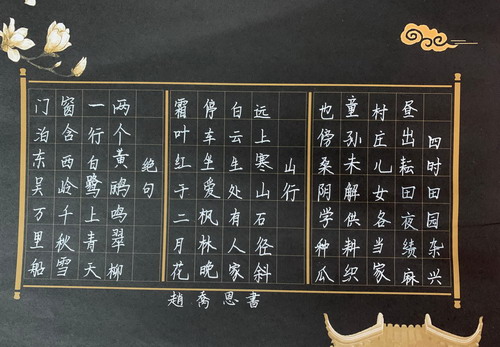 四时田园杂兴
昼出耘田夜绩麻
村庄儿女各当家
童孙未解供耕织
也傍桑阴学种瓜
山行
远上寒山石径斜
白云生处有人家
停车坐爱枫林晚
霜叶红于二月花
绝句
两个黄鹂鸣翠柳
一行白鹭上青天
窗含西岭千秋雪
门泊东吴万里船
趙喬恩書